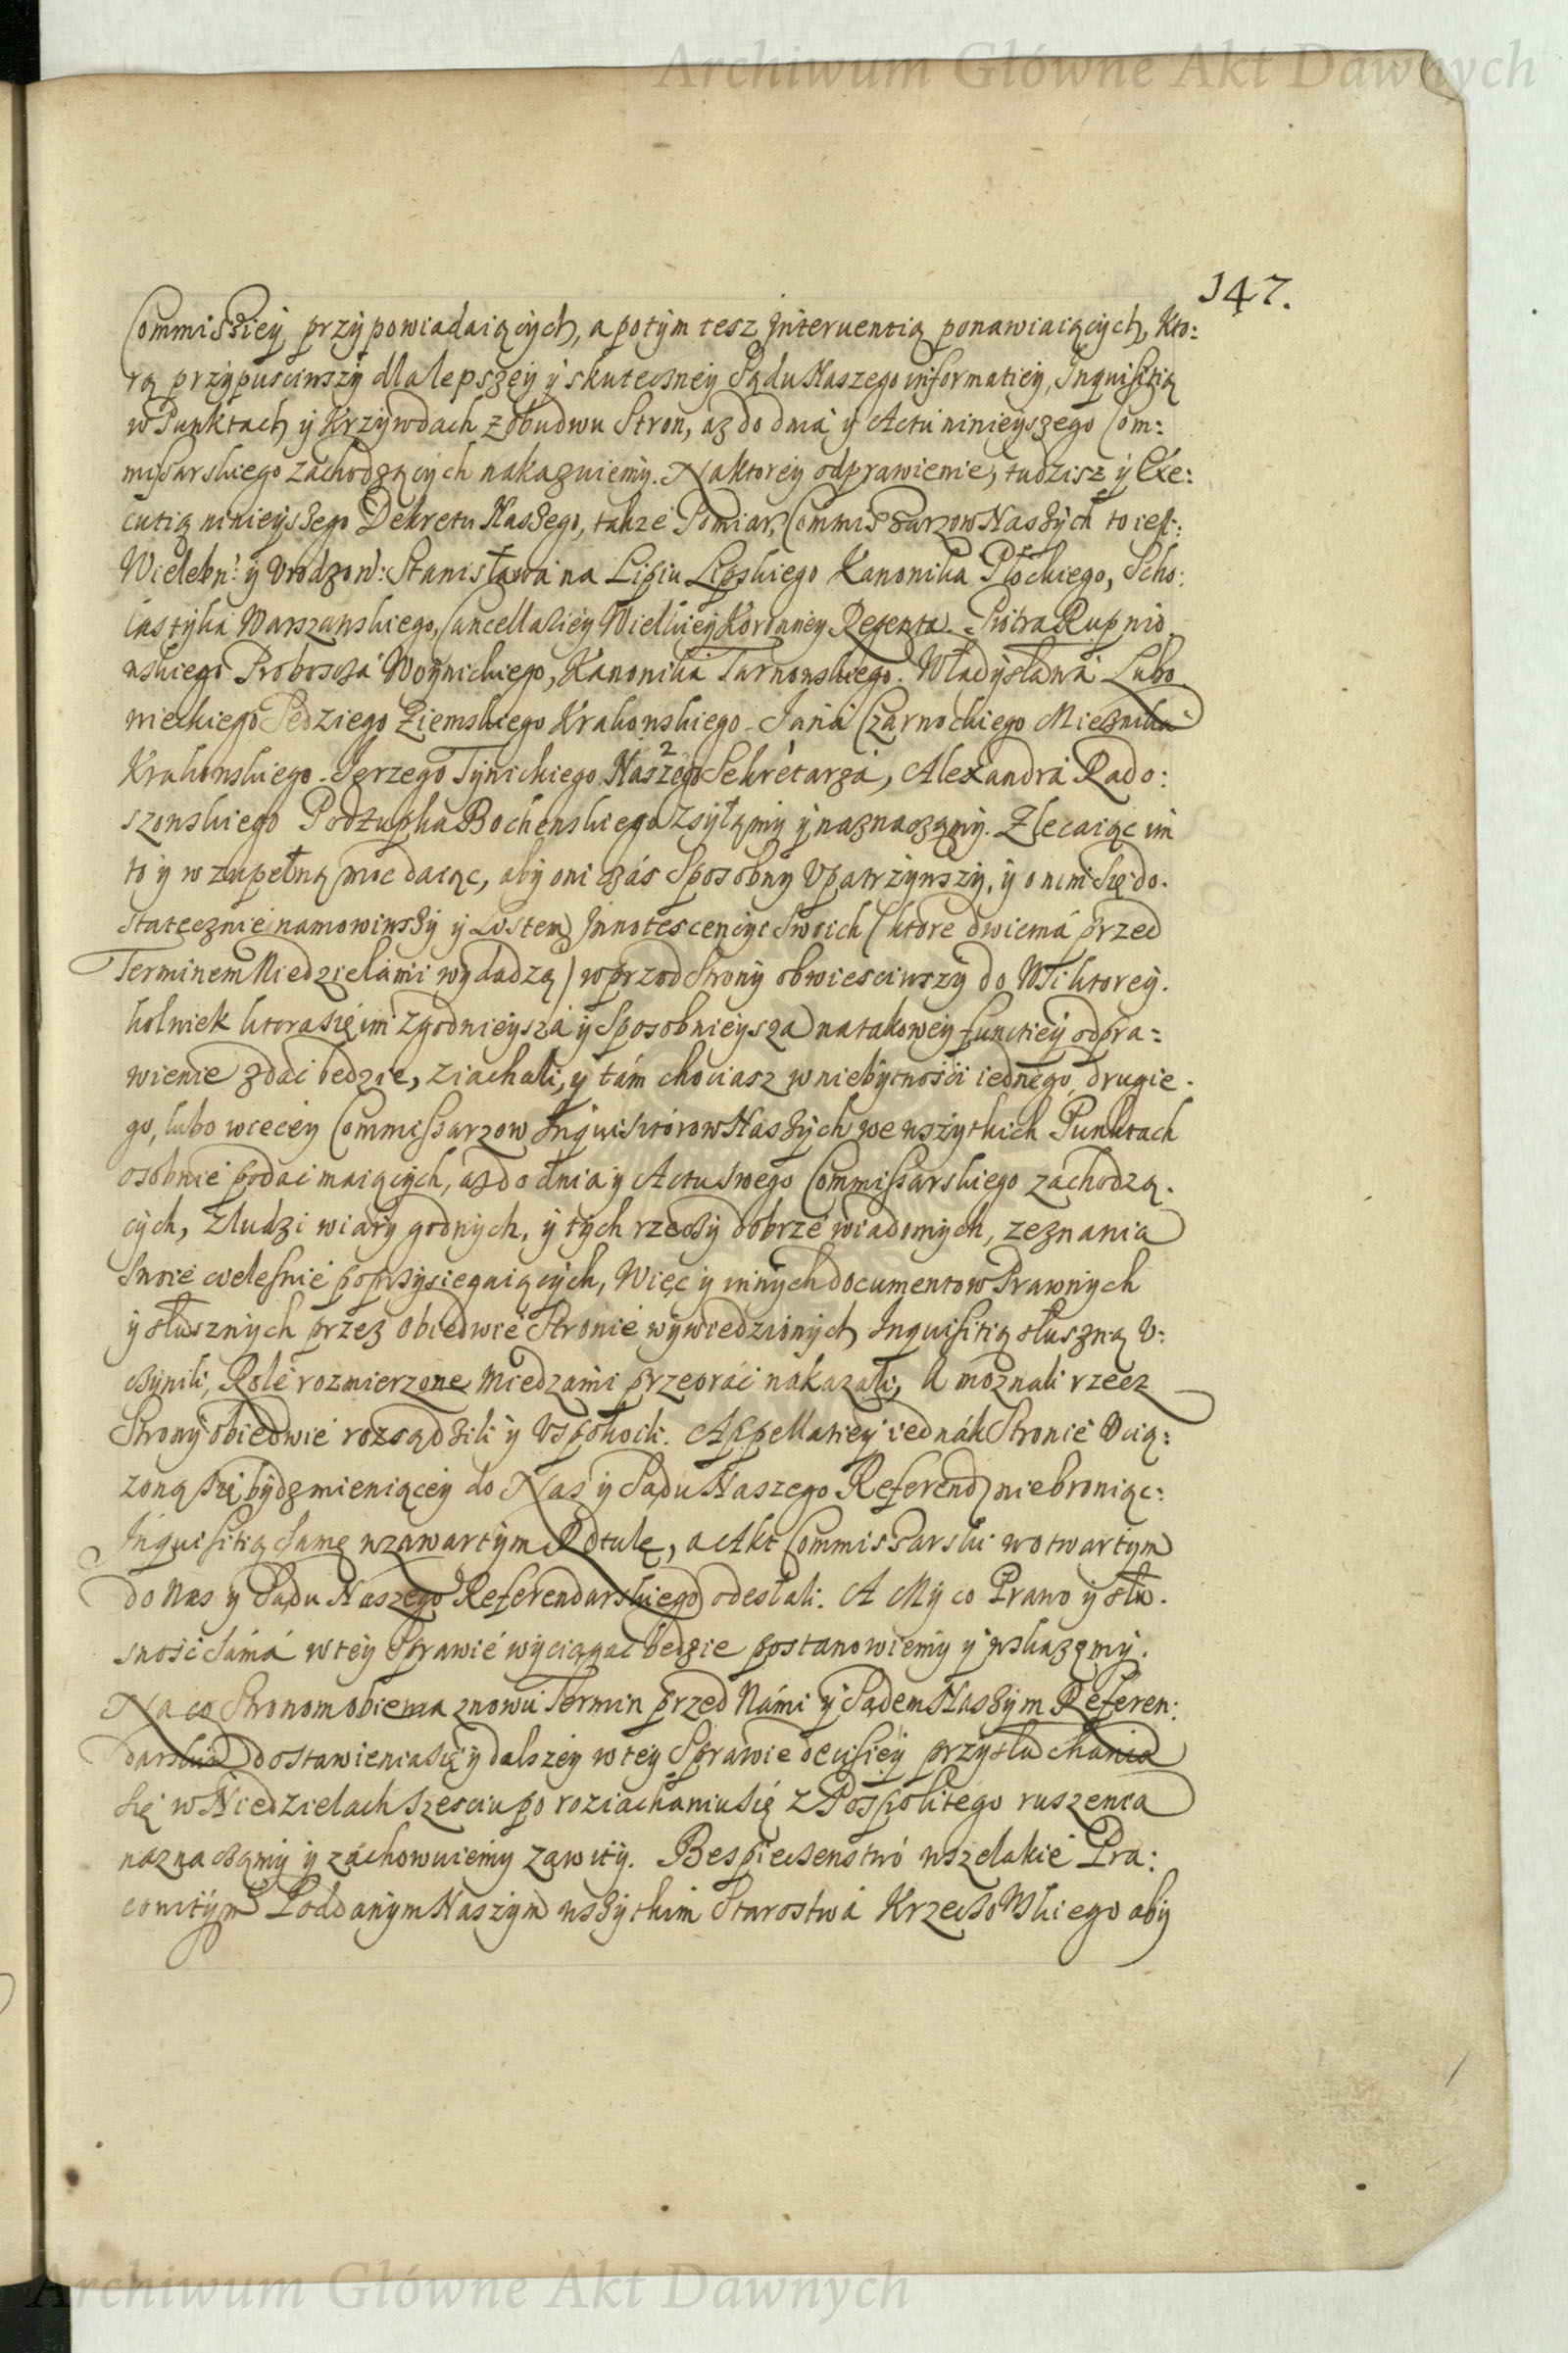 Archiwum Główne Akt Dawnych
147.
Commissiey przypowiadaiących, a potym tesz Interuentią ponawiaiących, Kto:
rą przypusciwszy dla lepszey y skuteczney Sądu Naszego informatiey, Inquisitią
w Punktach y Krzywdach z obudwu Stron, aż do dnia y Actu ninieyszego Com:
missarskiego zachodzących nakazuiemy. Na ktorey odprawienie, tudzisz y Exe:
cutią ninieyszego Dekretu Naszego, także Pomiar, Commissarzow Naszych to iest:
Wielebn: y Vrodzon: Stanisława na Lipiu Lipskiego Kanonika Płockiego, Scho:
lastyka Warszawskiego, Cancellariey Wielkiey Koronney Regenta. Piotra Rupnio
wskiego Proboszcza Woynickiego, Kanonika Tarnowskiego. Władysława Lubo
wieckiego Sędziego Ziemskiego Krakowskiego. Jana Czarnockiego Miecznika
Krakowskiego. Jerzego Tynickiego Naszego Sekretarza, Alexandra Rado:
szowskiego Podżupka Bochenskiego zsyłamy y naznaczamy. Zlecaiąc im
to y w zupełną moc daiąc, aby oni czás sposobny vpatrzywszy, y o nim się do.
statecznie namowiwszy y Listem Innotescencyi swoich (ktore dwiema przed
Terminem Niedzielami wydadzą) wprzod Strony obwiesciwszy do Wsi ktorey.
kolwiek ktora się im zgodnieysza y sposobnieysza na takowey functiey odpra=
wienie zdac będzie, ziachali, y tám chociasz w niebytności iednego, drugie.
go, lubo więcey Commissarzow Inquisitorow Naszych we wszytkich Punktach
osobnie podac maiących, aż do dnia y Actu swego Commissarskiego zachodzą.
cych, z ludzi wiary godnych, y tych rzeczy dobrze wiadomych, zeznania
swoie cielesnie poprzysięgaiących, Więc y innych documentow Prawnych
y słusznych przez obiedwie Stronie wywiedzionych Inquisitią słuszną v:
czynili, Role rozmierzone miedzami przeorać nakazali, A moznali rzecz
Strony obiedwie rozsądzili y vspokoili. Appellatiey iednák Stronie vcią:
żoną się bydz mieniącey do Nas y Sądu Naszego Referend niebroniąc:
Inquisitią samę w zawartym Rotule, a Akt Commissarski w otwartym
do Nas y Sądu Naszego Referendarskiego odesłali. A My co Prawo y słu.
sność sámá w tey sprawie wyciągac będzie postanowiemy y wskażemy.
Na co Stronom obiema znowu Termin przed Námi y Sądem Naszym Referen:
darskim dostawienia się y dalszey w tey Sprawie decisiey przysłuchania
się w Niedzielach szesciu po roziachaniu się z Pospolitego ruszenia
naznaczamy y záchowuiemy zawity. Bespieczenstwo wszelakie Pra:
cowitym Poddanym Naszym wszytkim Starostwa Krzeczowskiego aby
Archiwum Główne Akt Dawnych